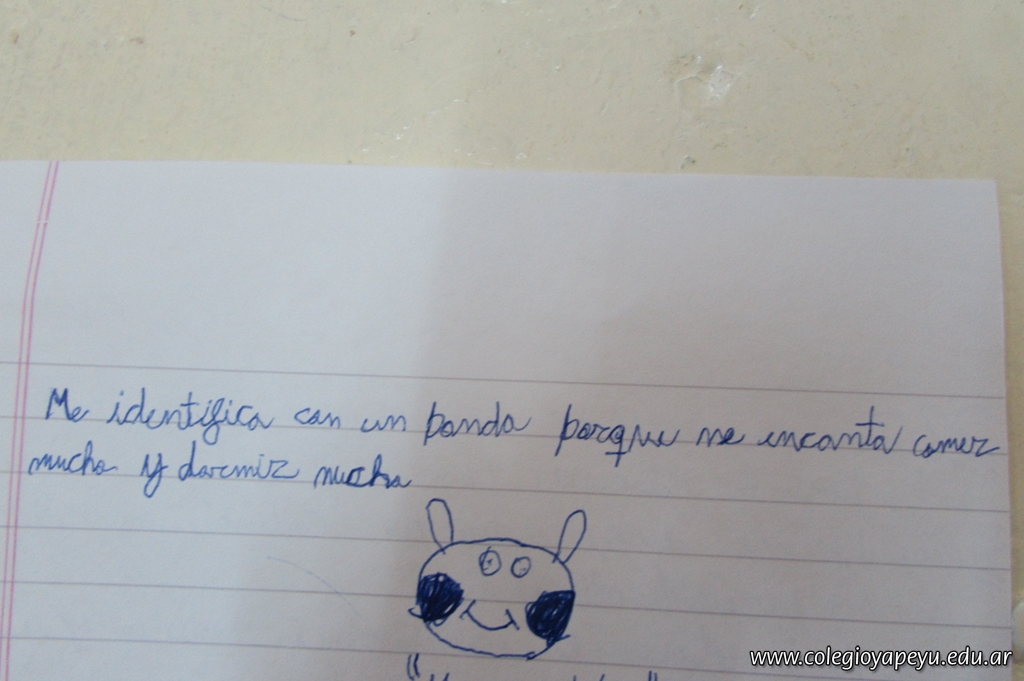 Me identifico con un panda porque me encanta comer
mucho y dormir mucho
www.colegioyapeyu.edu.ar